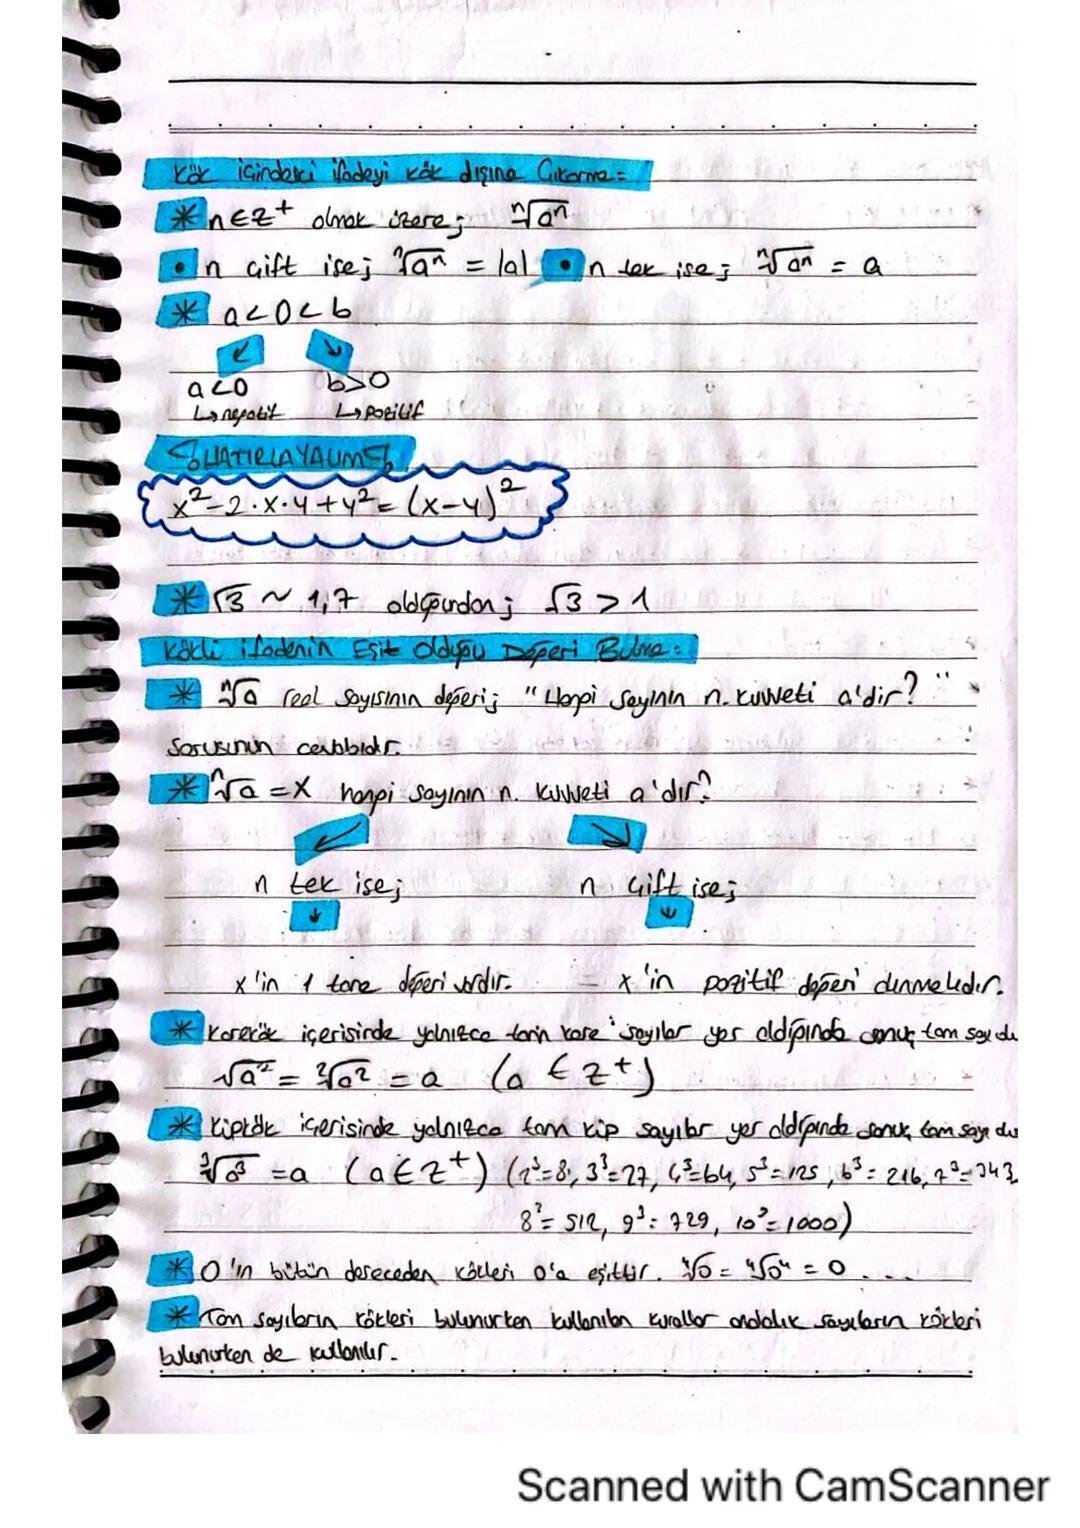 Kök içindeki ifadeyi kök dışına Çıkarma=
* n∈Z⁺ olmak üzere; ⁿ√aⁿ
• n çift ise; ⁿ√aⁿ = |a| • n tek ise; ⁿ√aⁿ = a
* a<0<b
↙ ↘
a<0 b>0
↳negatif ↳pozitif
HATIRLAYALIM
x²-2·x·y+y²=(x-y)²
* √3 ~ 1,7 olduğundan; √3 > 1
Köklü ifadenin Eşit Olduğu Değeri Bulma:
* ⁿ√a reel sayısının değeri; "Hangi sayının n. kuvveti a'dır?"
sorusunun cevabıdır.
* ⁿ√a = x hangi sayının n. kuvveti a'dır?
↙ ↘
n tek ise; n çift ise;
↓ ↓
x'in 1 tane değeri vardır. – x'in pozitif değeri alınmalıdır.
* Karekök içerisinde yalnızca tam kare sayılar yer aldığında sonuç tam sayıdı
√a² = ²√a² = a (a ∈ Z⁺)
* Küpkök içerisinde yalnızca tam küp sayılar yer aldığında sonuç tam sayı dı
³√a³ = a (a∈Z⁺) (2³=8, 3³=27, 4³=64, 5³=125, 6³=216, 7³=343,
8³=512, 9³=729, 10³=1000)
* 0'ın bütün dereceden kökleri 0'a eşittir. ⁴√0 = ⁴√0⁴ = 0 ....
* Tam sayıların kökleri bulunurken kullanılan kurallar ondalık sayıların kökleri
bulunurken de kullanılır.
Scanned with CamScanner